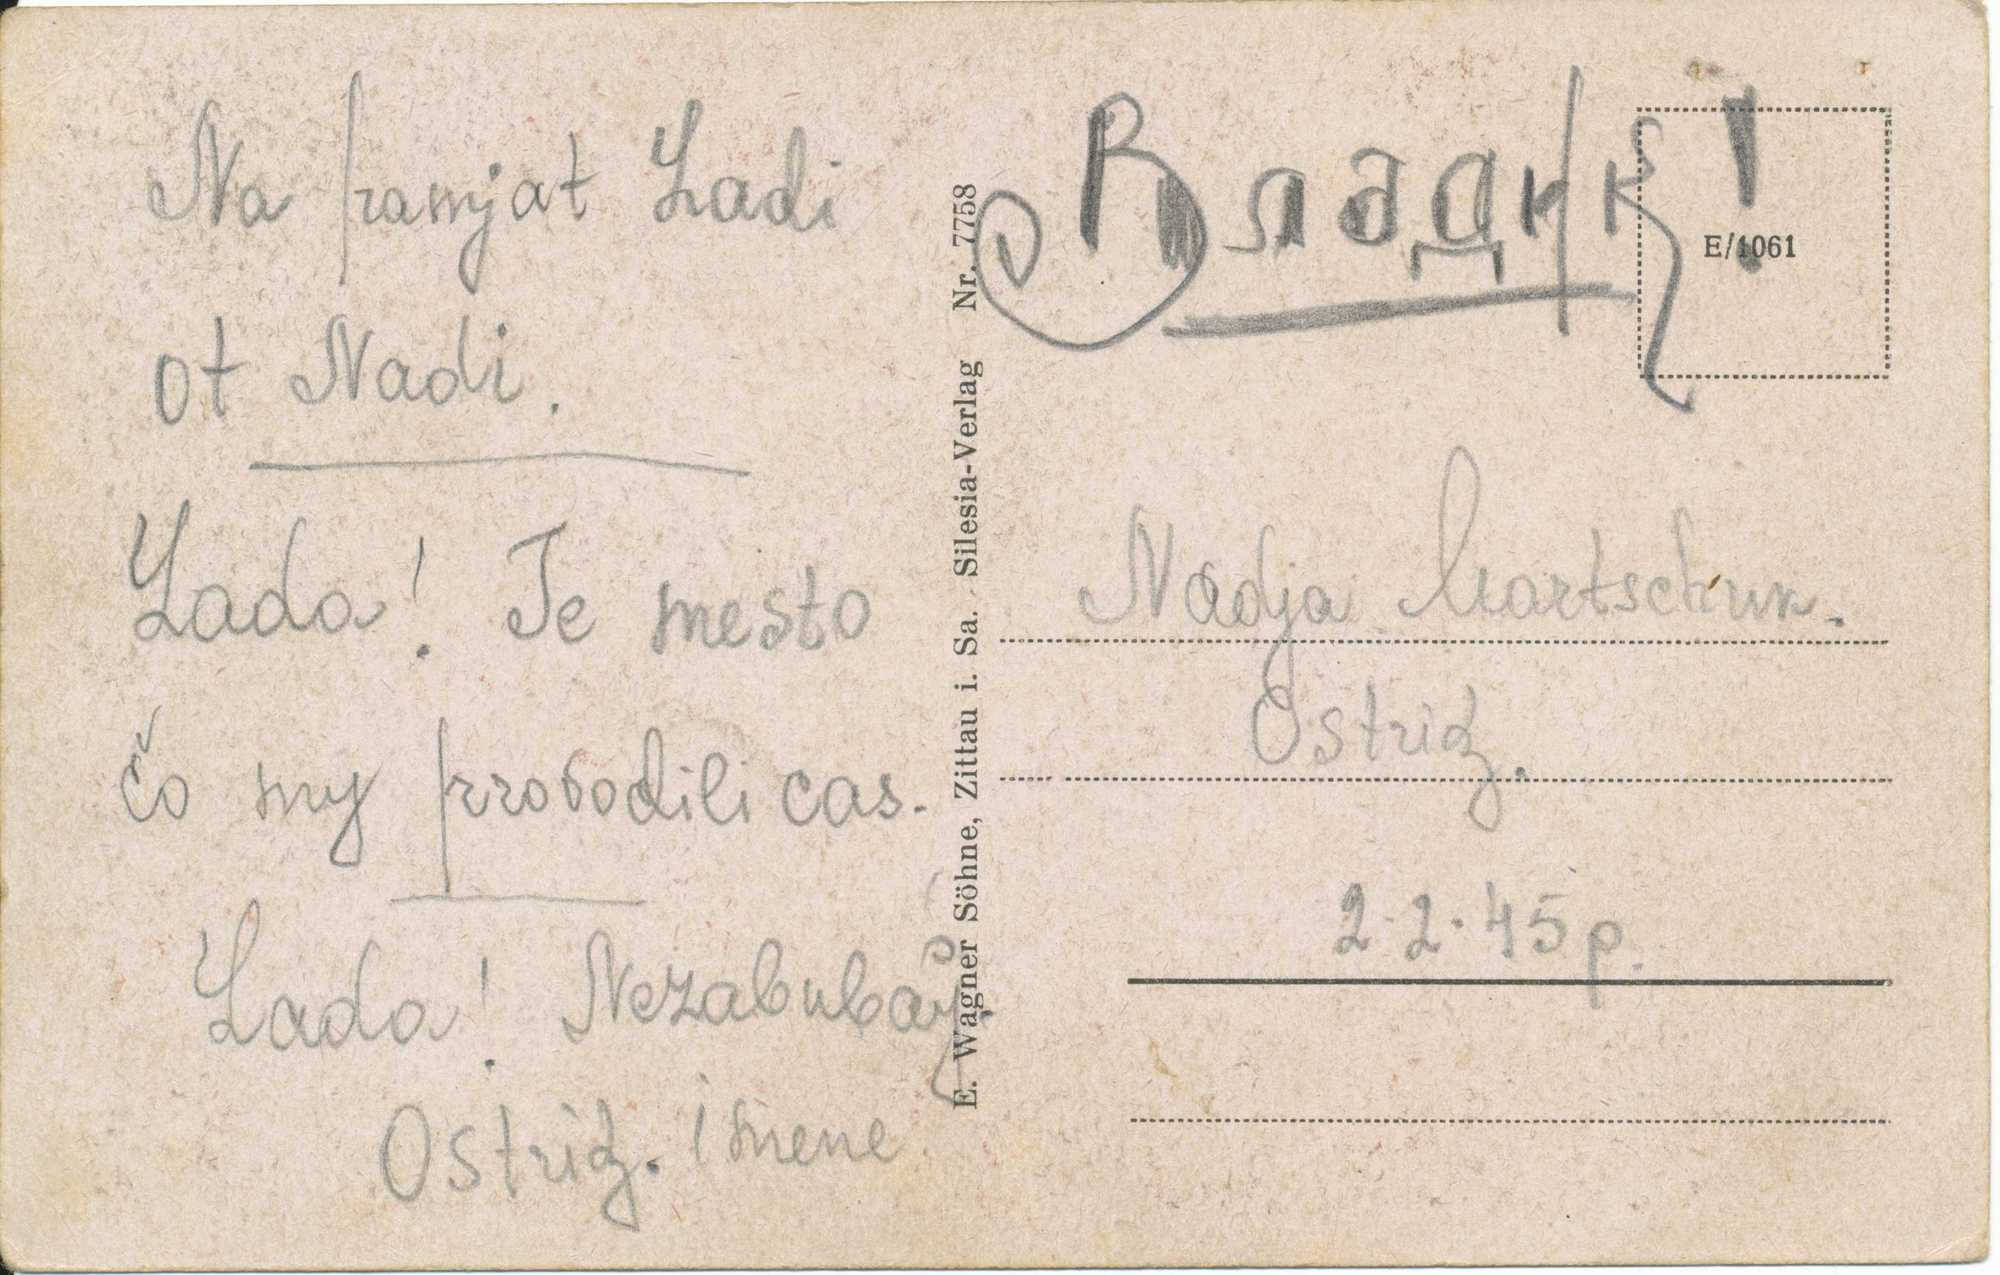 Na pamjat Ladi
ot Nadi.
Lada! Te mesto
čo my provodili cas.
Lada! Nezabubaý
Ostriz. i mene
E. Wagner Söhne, Zittau i. Sa. Silesia-Verlag Nr. 7758
Владик!
E/1061
Nadja Martschun.
Ostriz.
2.2.45 р.